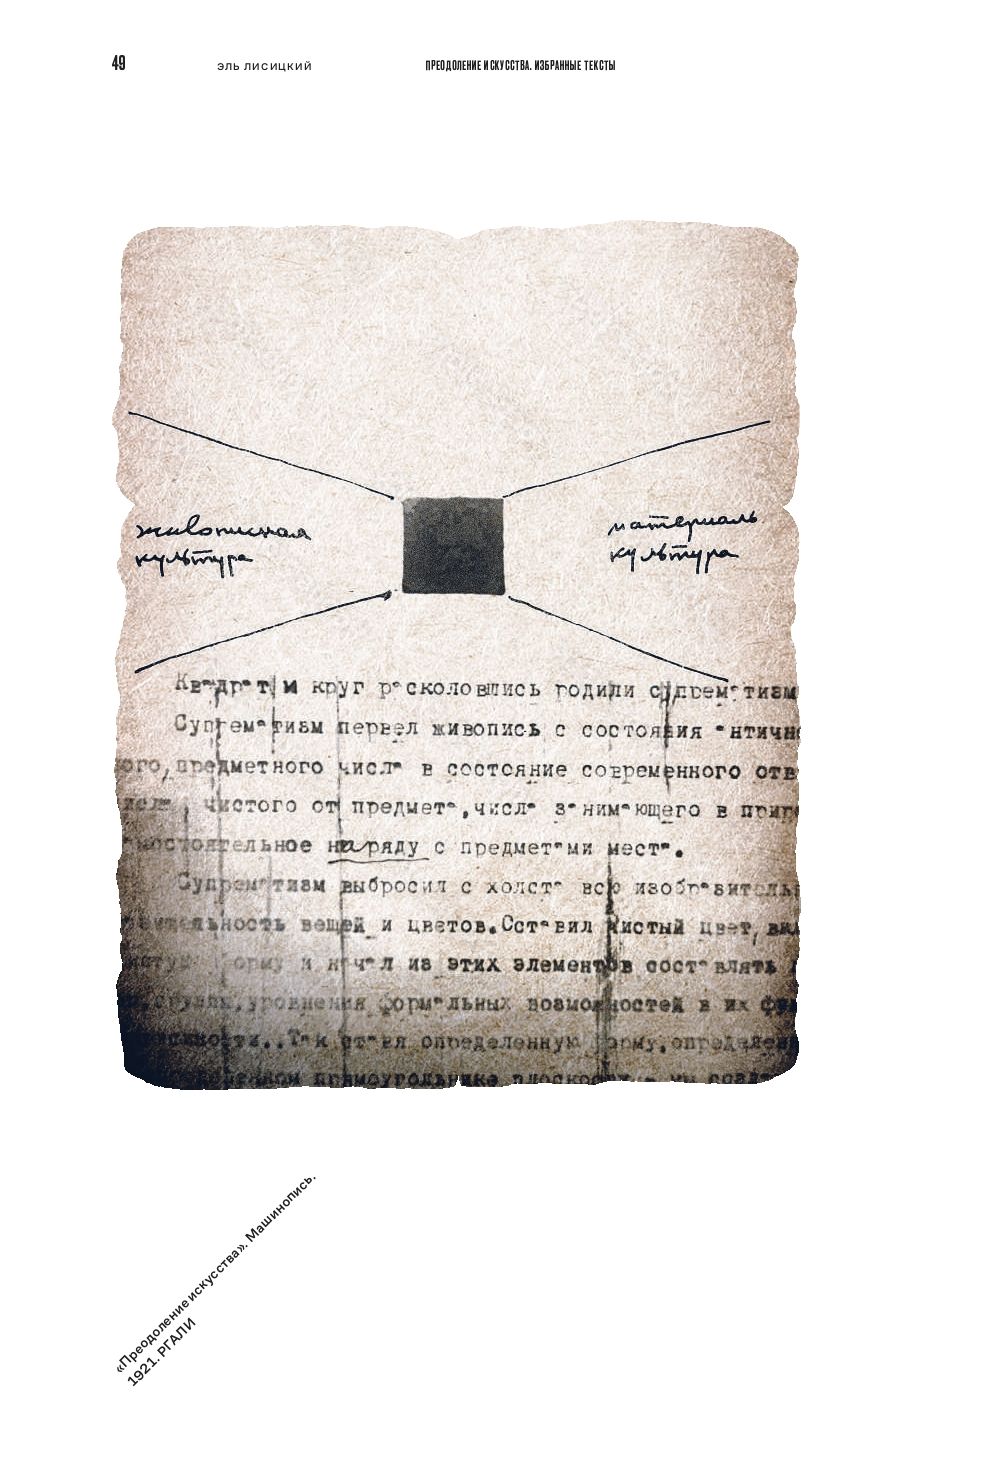 49
ЭЛЬ ЛИСИЦКИЙ
ПРЕОДОЛЕНИЕ ИСКУССТВА. ИЗБРАННЫЕ ТЕКСТЫ
живописная
культура
материаль
культура
Квадрат и круг расколовшись родили супрематизм
Супрематизм перевел живопись с состояния антично
ого, предметного числа в состояние современного отв
чистого от предмета, числа занимающего в приро
мостоятельное наряду с предметами место.
Супрематизм выбросил с холста всю изобразитель
вещей и цветов. Ставил чистый цвет,
форму и начал из этих элементов составлять
уровнения формальных возможностей в их
Так ставя определенную форму,
прямоугольнике
«Преодоление искусства». Машинопись.
1921. РГАЛИ